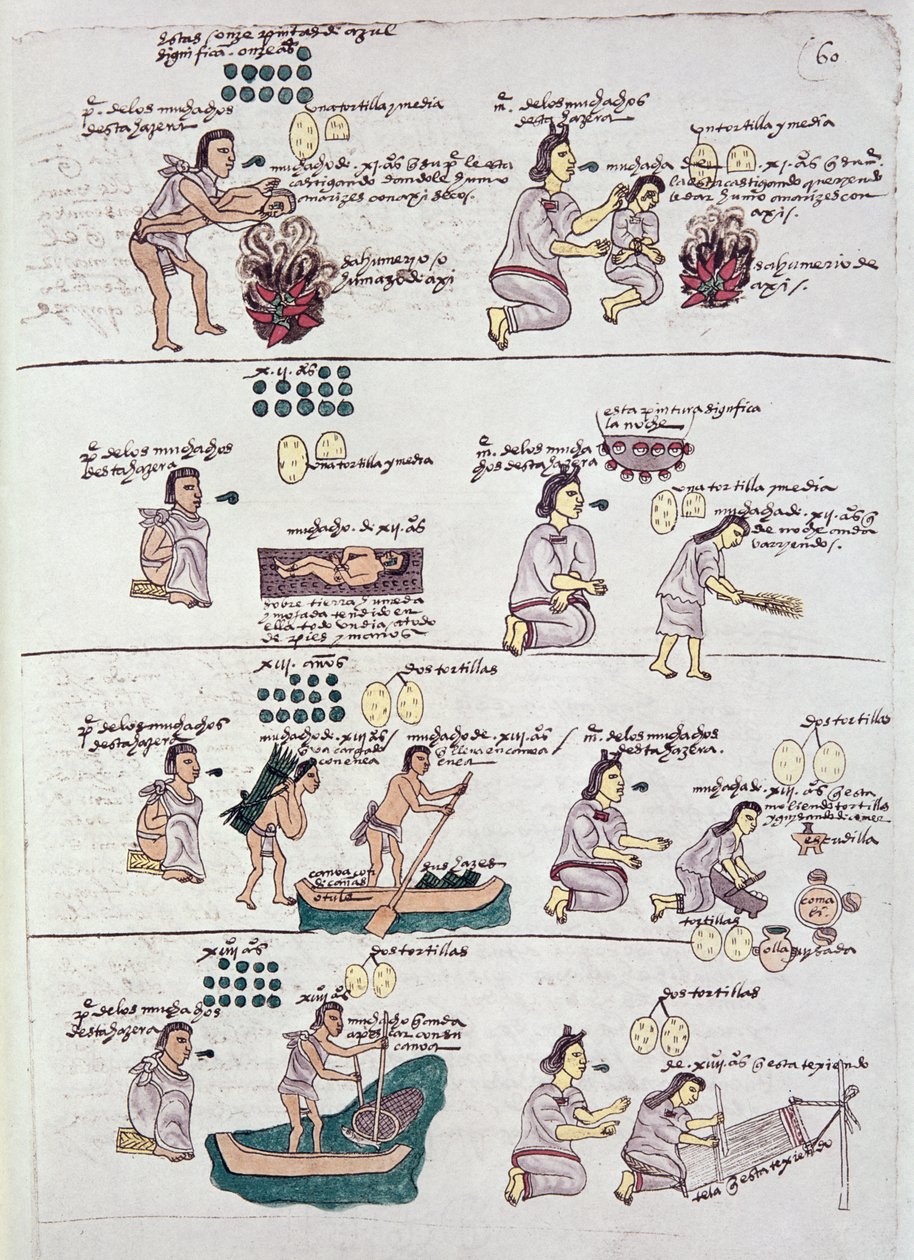 60
estas onze pintas de azul
significā onze as
pe. de los muchachos
desta hazera
una tortilla y media
muchacho de .XI. as q su pe le esta
castigando dandole humo
a narizes con axi secos.
sahumerio o
humazo de axi
me. de los muchachos
desta hazera
un tortilla y media
muchacha de .XI. as q su me.
la esta castigando queriendo
le dar humo a narizes con
axi.
sahumerio de
axi.
X.II. as
pe. de los muchachos
desta hazera
una tortilla y media
muchacho. de XII. as
sobre tierra humeda
y mojada tendido en
ella todo un dia atado
de pies y manos
esta pintura significa
la noche
me. de los mucha
chos desta hazera
una tortilla y media
muchacha de .XII. as q
de noche anda
varriendo.
XIII. años
dos tortillas
pe. de los muchachos
desta hazera
muchacho de .XIII. as
q va cargado
con enea
muchacho de .XIII. as
q lleva en canoa
enea
canoa con
de cañas
o tule
sus hazes
me. de los muchachos
desta hazera.
dos tortillas
muchacha de .XIII. as q esta
moliendo tortillas
y guisando de comer
escudilla
comali.
tortillas
olla guisada
XIIII as
dos tortillas
pe. de los muchachos
desta hazera
XIIII as
muchacho q anda
a pescar con su
canoa
dos tortillas
de .XIIII. as q esta texiendo
tela q esta texiendo